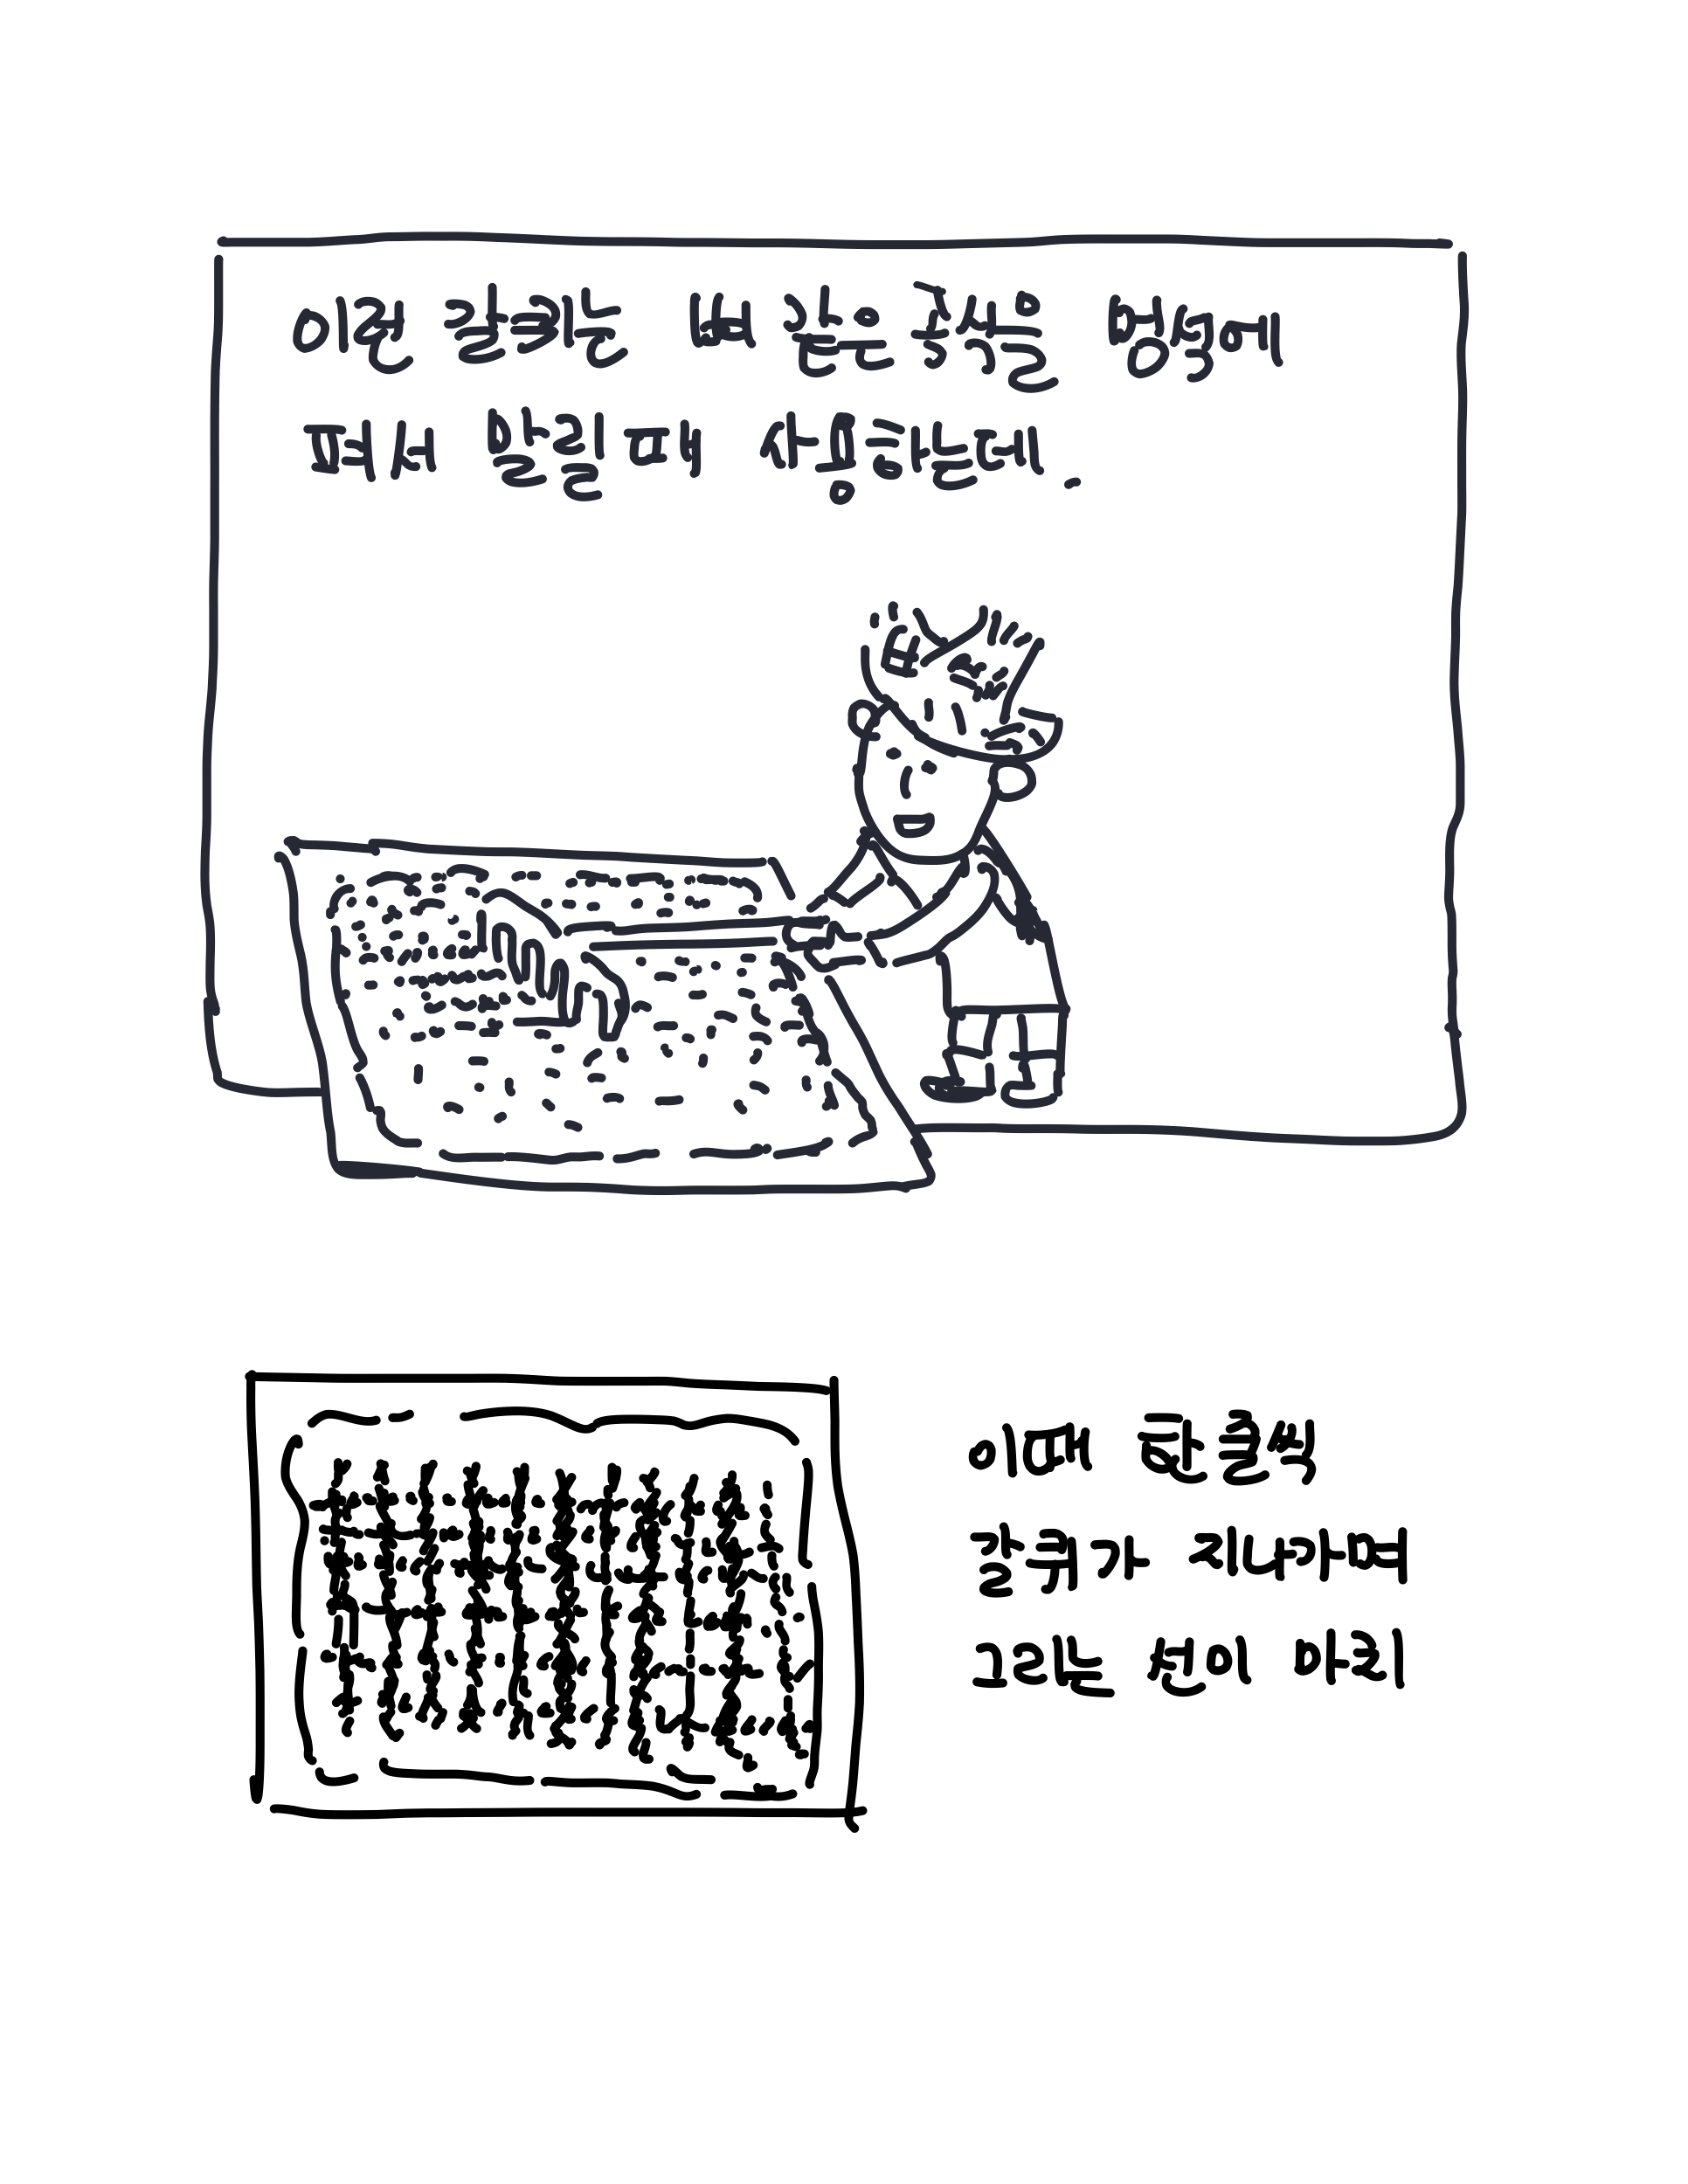 이런 갈퀴는 벼 같은 곡식을 바닥에
펴서 말릴 때 사용하는데.
이때 한 줄씩
갈퀴가 지나가며
그리는 선이 마리